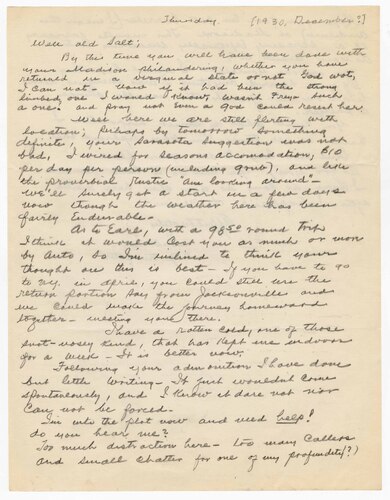 Thursday. [1930, December?]
Well old Salt;
By this time you will have been done with
your Madison philandering; whether you have
returned in a virginal state or not God wot,
I can not - Now if it had been the strong
limbed, one I wound I know, wasn't Frey such
a one. and pray not even a God could resist her.
Well here we are still flirting with
location; perhaps by tomorrow something
definite, your Sarasota suggestion was not
bad, I wired for seasons accomodation, $10
per day per person (including grub), and like
the proverbial rustic "am looking around" -
We'll surely get a start in a few days
now though the weather here has been
fairly endurable.
As to Earl, with a 98.50 round trip
I think it would cost you as much or more
by auto, so I'm inclined to think your
thought on this is best - If you have to go
to N.Y. in April, you could still use the
return portion say from Jacksonville and
we could make the journey homeward
together - meeting you there.
I have a rotten cold, one of those
snot-nosey kind, that has kept me indoors
for a week - It is better now.
Following your admonition I have done
but little writing - It just wouldn't come
spontaneously, and I know it dare not nor
can not be forced.
I'm into the plot now and need help!
do you hear me?
Too much distraction here - too many callers
and small chatter for one of my profundity(?)